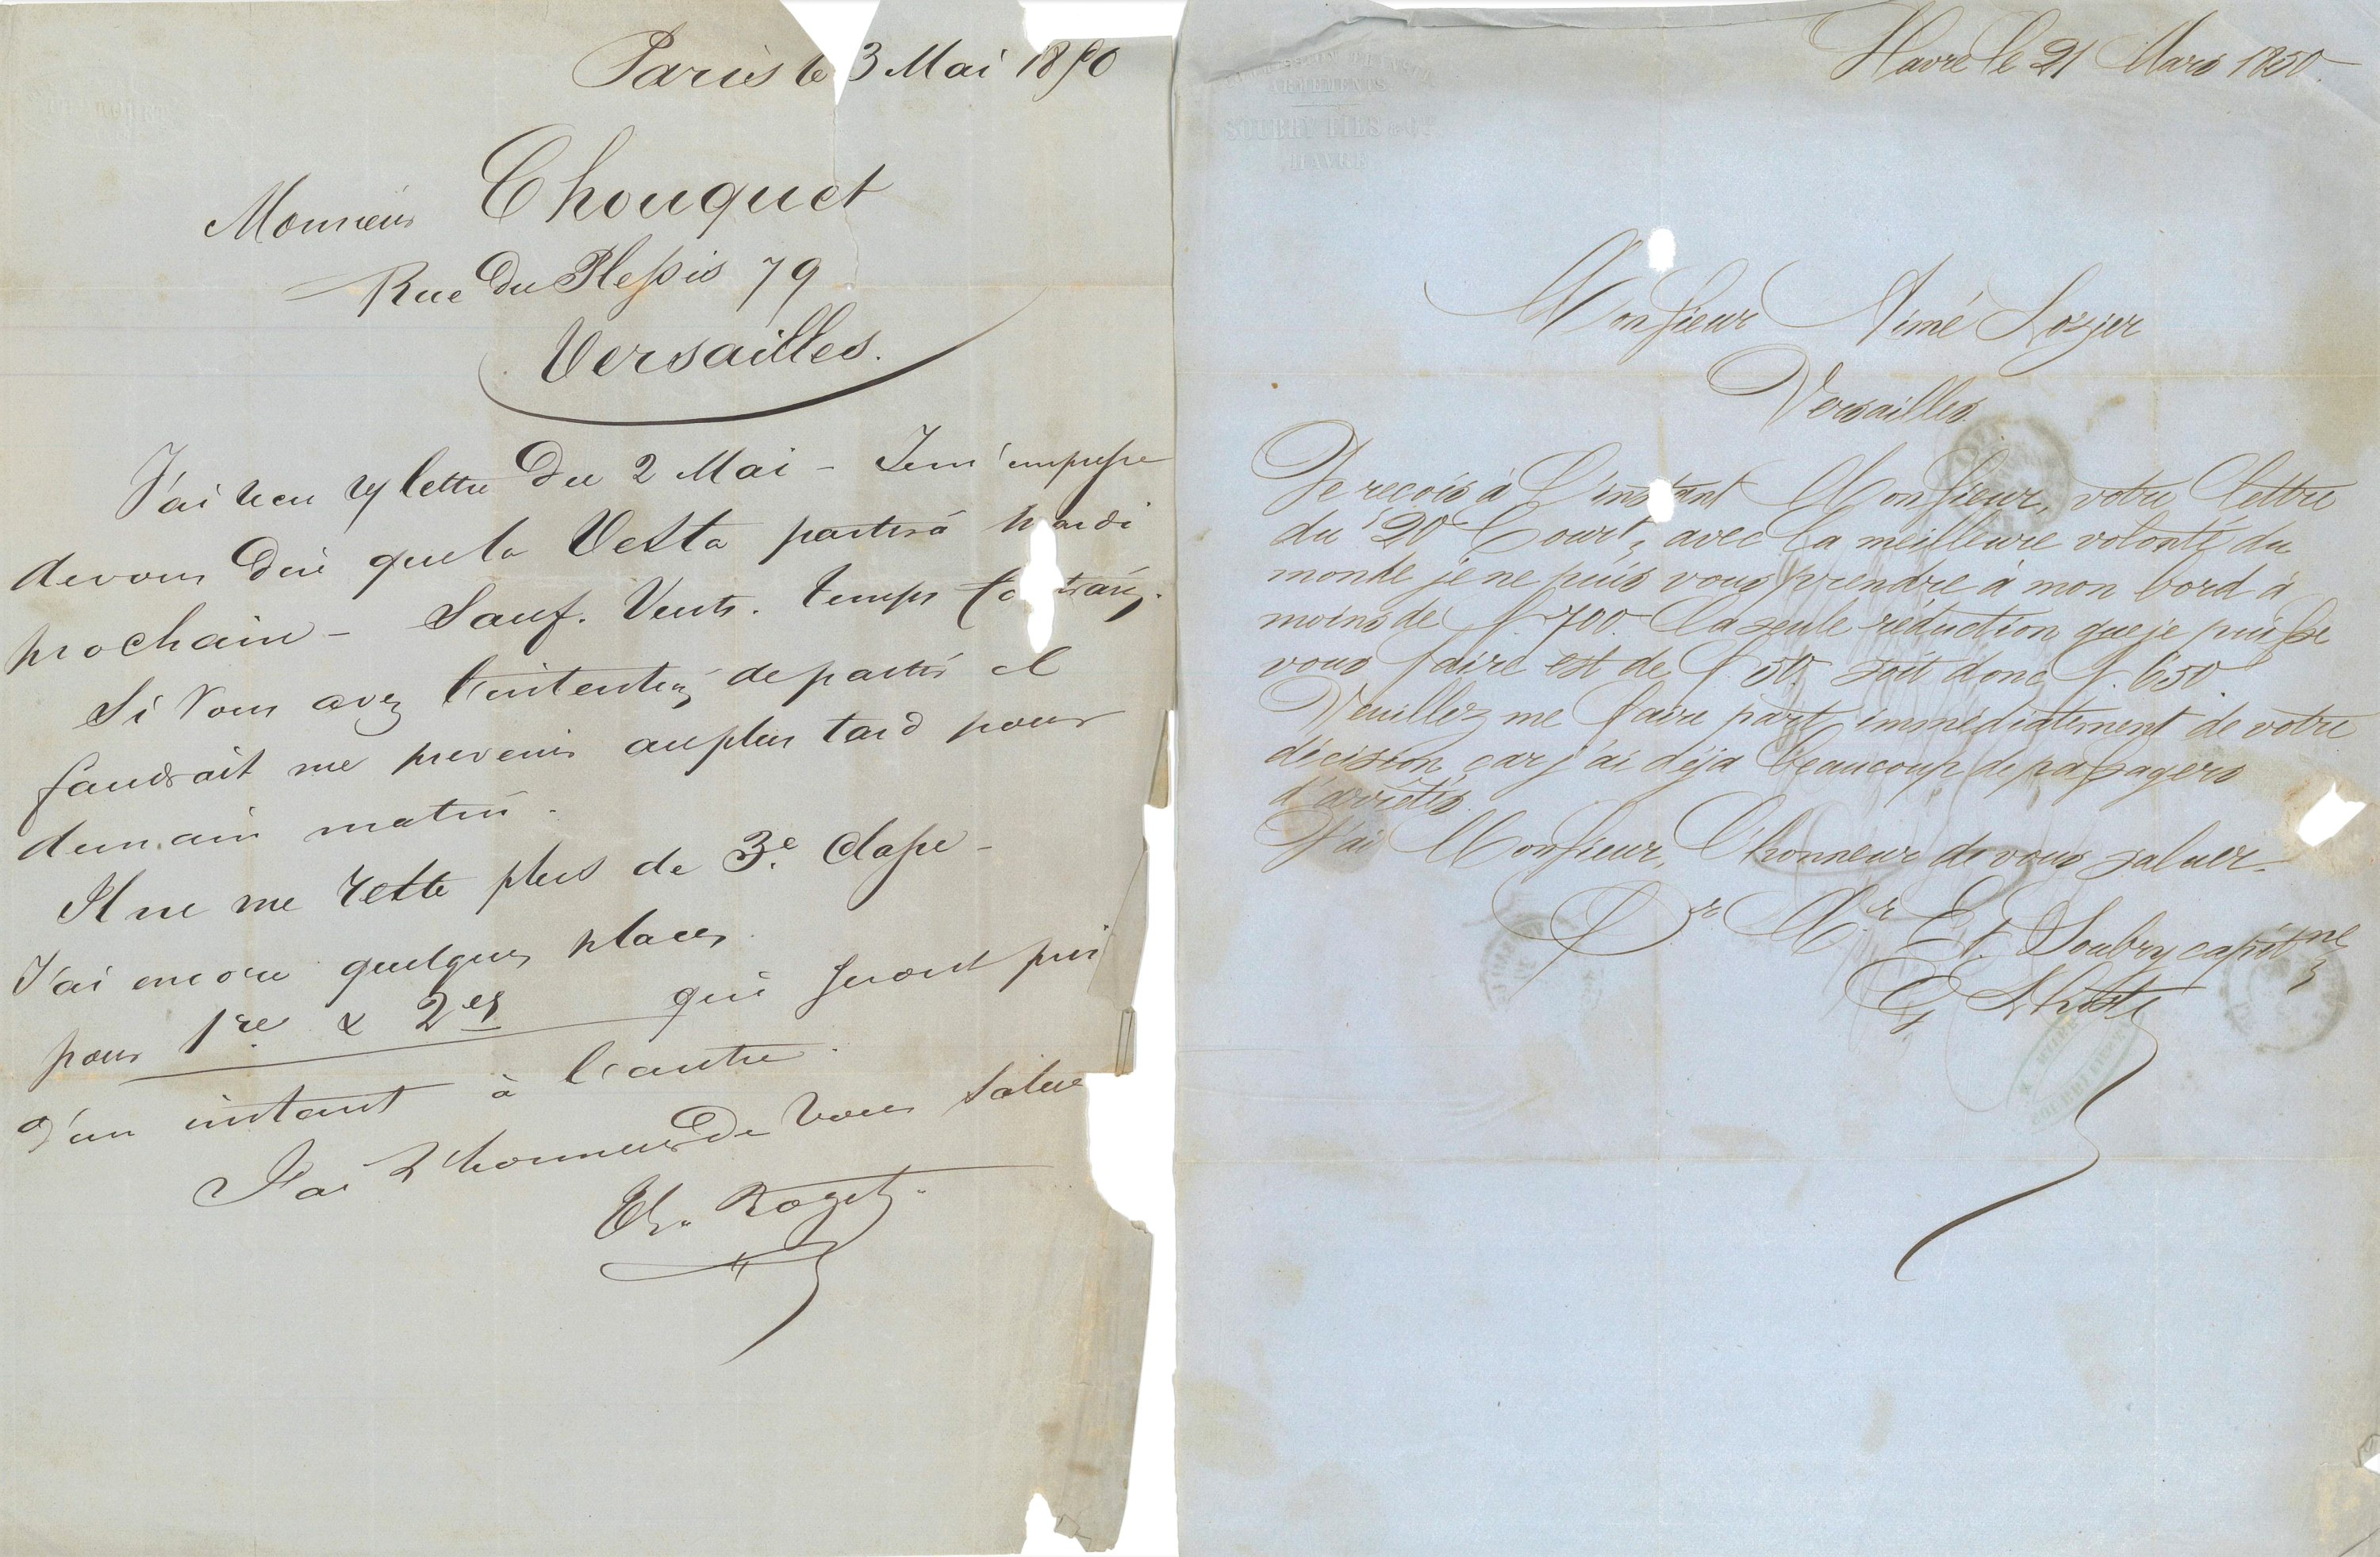 Paris le 3 Mai 1850
Monsieur Chouquet
Rue Du Plessis 79
Versailles.
J'ai recu vs lettre Du 2 Mai - Je m'empresse
de vous Dire que la Vesta partira mardi
prochain - Sauf. Vents. temps
Si Vous avez l'intention de partir il
faudrait me prevenir au plus tard pour
demain matin.
Il ne me reste plus de 3e. Classe -
J'ai encore quelques places
pour 1re & 2es qui seront pris
d'un instant à l'autre.
J'ai L'honneur De Vous Saluer
Roget
ARMEMENTS
SOUBRY FILS & Cie
HAVRE
Havre le 21 Mars 1850.
Monsieur Aimé Lozier
Versailles.
Je reçois à L'instant Monsieur, votre lettre
du 20 Court, avec la meilleure volonté du
monde je ne puis vous prendre à mon bord à
moins de f. 700. la seule réduction que je puisse
vous faire est de f. 50. soit donc f. 650.
Veuillez me faire part immédiatement de votre
décision, car j'ai déja beaucoup de passagers
d'arrêtés.
J'ai Monsieur, l'honneur de vous saluer.
Pr Mr Et. Soubry capitne